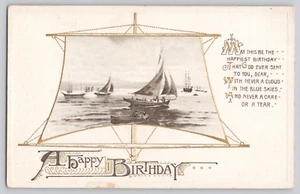 MAY THIS BE THE
HAPPIEST BIRTHDAY
THAT GOD EVER SENT
TO YOU, DEAR,
WITH NEVER A CLOUD
IN THE BLUE SKIES,
AND NEVER A CARE
OR A TEAR.
A HAPPY BIRTHDAY